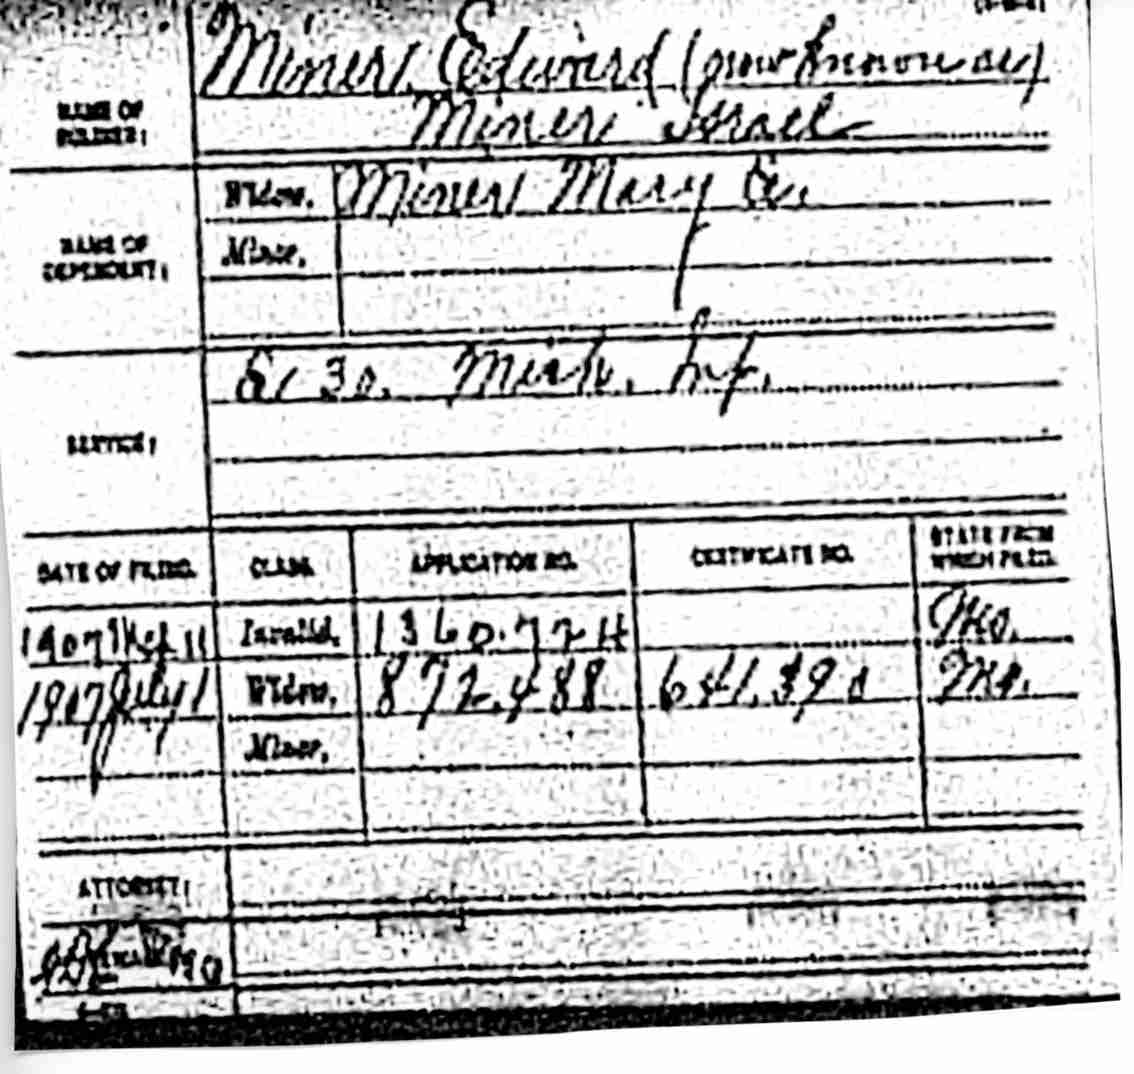 Miner, Edward (now known as)
NAME OF SOLDIER: Miner Israel
NAME OF DEPENDENT: Widow, Miner Mary
Minor,
SERVICE: 30. Mich. Inf.
DATE OF FILING. CLASS. APPLICATION NO. CERTIFICATE NO. STATE FROM WHICH FILED.
1907 11 Invalid, 1360.724 Mo.
1907 July 1 Widow, 872.488 641.390 Mo.
Minor,
ATTORNEY: